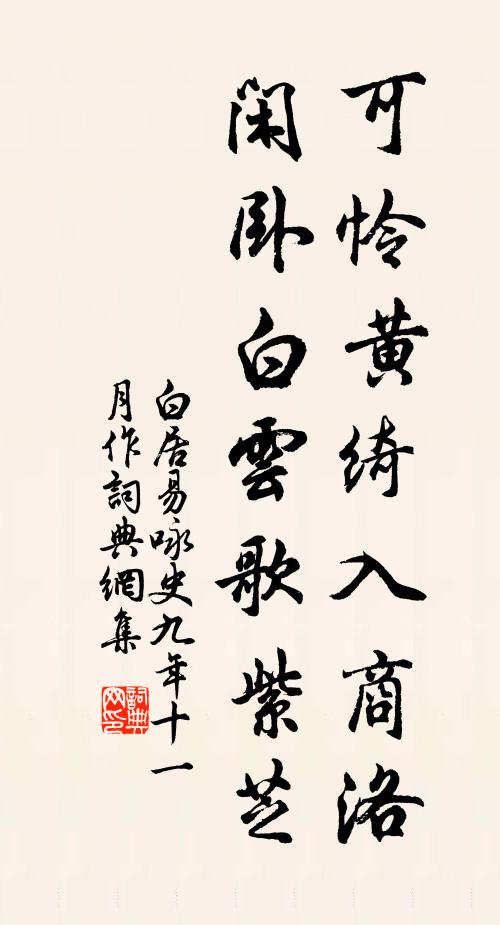 可怜黄绮入商洛
闲卧白雲歌紫芝
白居易咏史九年十一
月作詞典網集
詞典网印